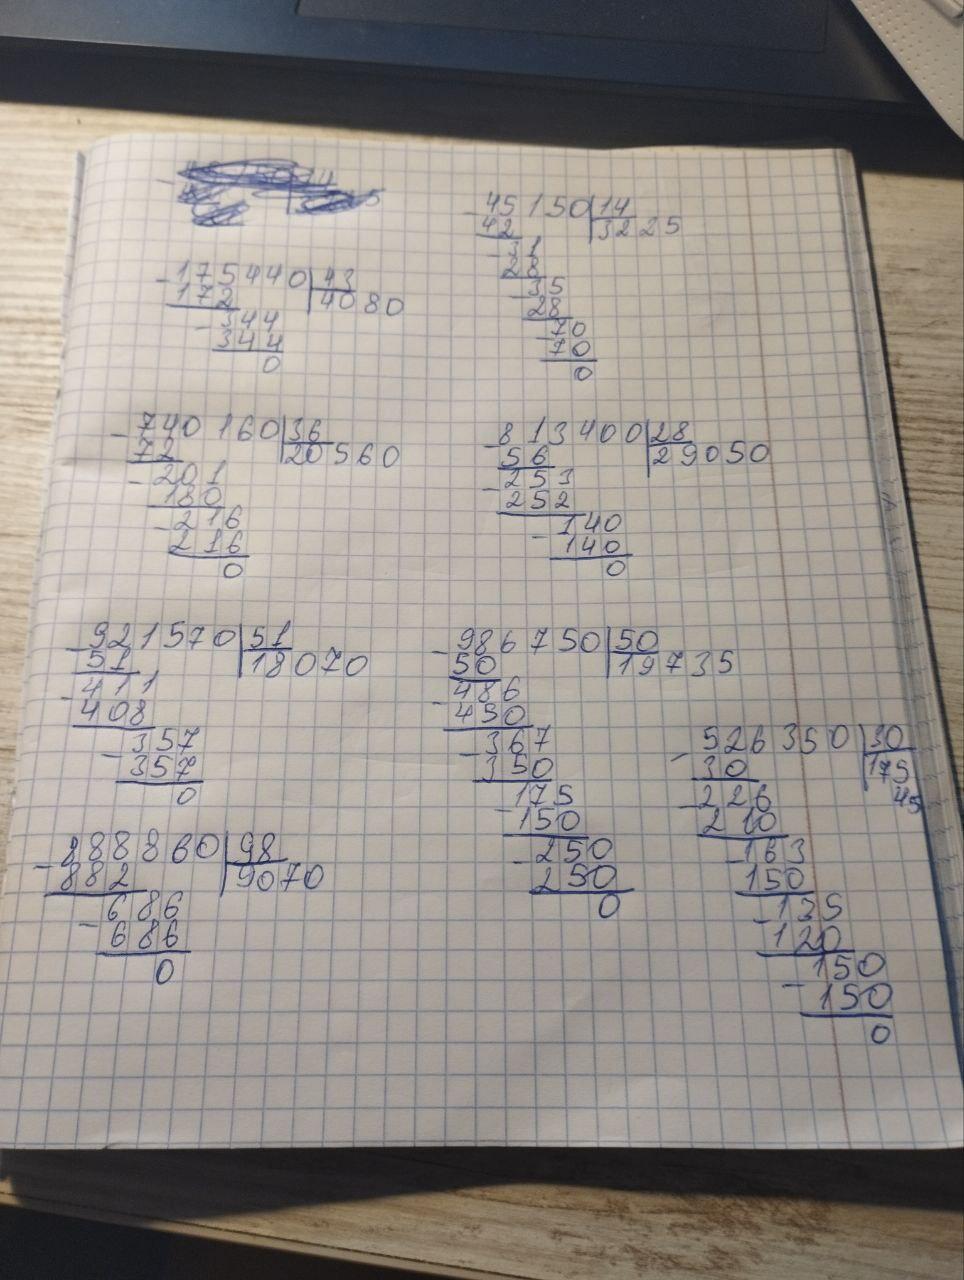 45150 14
42 3225
31
28
35
28
70
70
0
175440 43
172 4080
344
344
0
740160 36
72 20560
201
180
216
216
0
813400 28
56 29050
253
252
140
140
0
921570 51
51 18070
411
408
357
357
0
986750 50
50 19735
486
450
367
350
175
150
250
250
0
526350 30
30 175
226 45
210
163
150
135
120
150
150
0
888860 98
882 9070
686
686
0